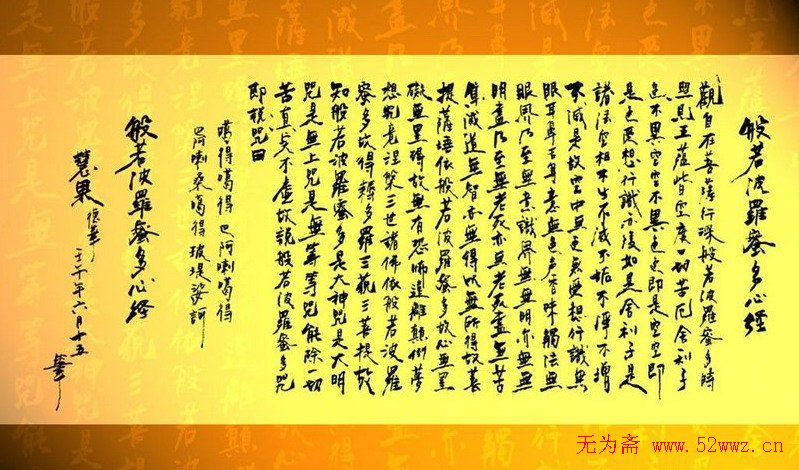 般若波羅蜜多心經
觀自在菩薩行深般若波羅蜜多時
照見五蘊皆空度一切苦厄舍利子
色不異空空不異色色即是空空即
是色受想行識亦復如是舍利子是
諸法空相不生不滅不垢不淨不增
不減是故空中無色無受想行識無
眼耳鼻舌身意無色声香味觸法無
眼界乃至無意識界無無明亦無無
明盡乃至無老死亦無老死盡無苦
集滅道無智亦無得以無所得故菩
提薩埵依般若波羅蜜多故心無罣
礙無罣礙故無有恐怖遠離顛倒夢
想究竟涅槃三世諸佛依般若波羅
蜜多故得耨多羅三藐三菩提故
知般若波羅蜜多是大神咒是大明
咒是無上咒是無等等咒能除一切
苦真实不虛故說般若波羅蜜多咒
即說咒曰
噶得噶得 巴阿喇噶得
巴阿喇桑噶得 玻堤娑訶
般若波羅蜜多心經
慧果
壬午年六月十五
无为斋 www.52wwz.cn